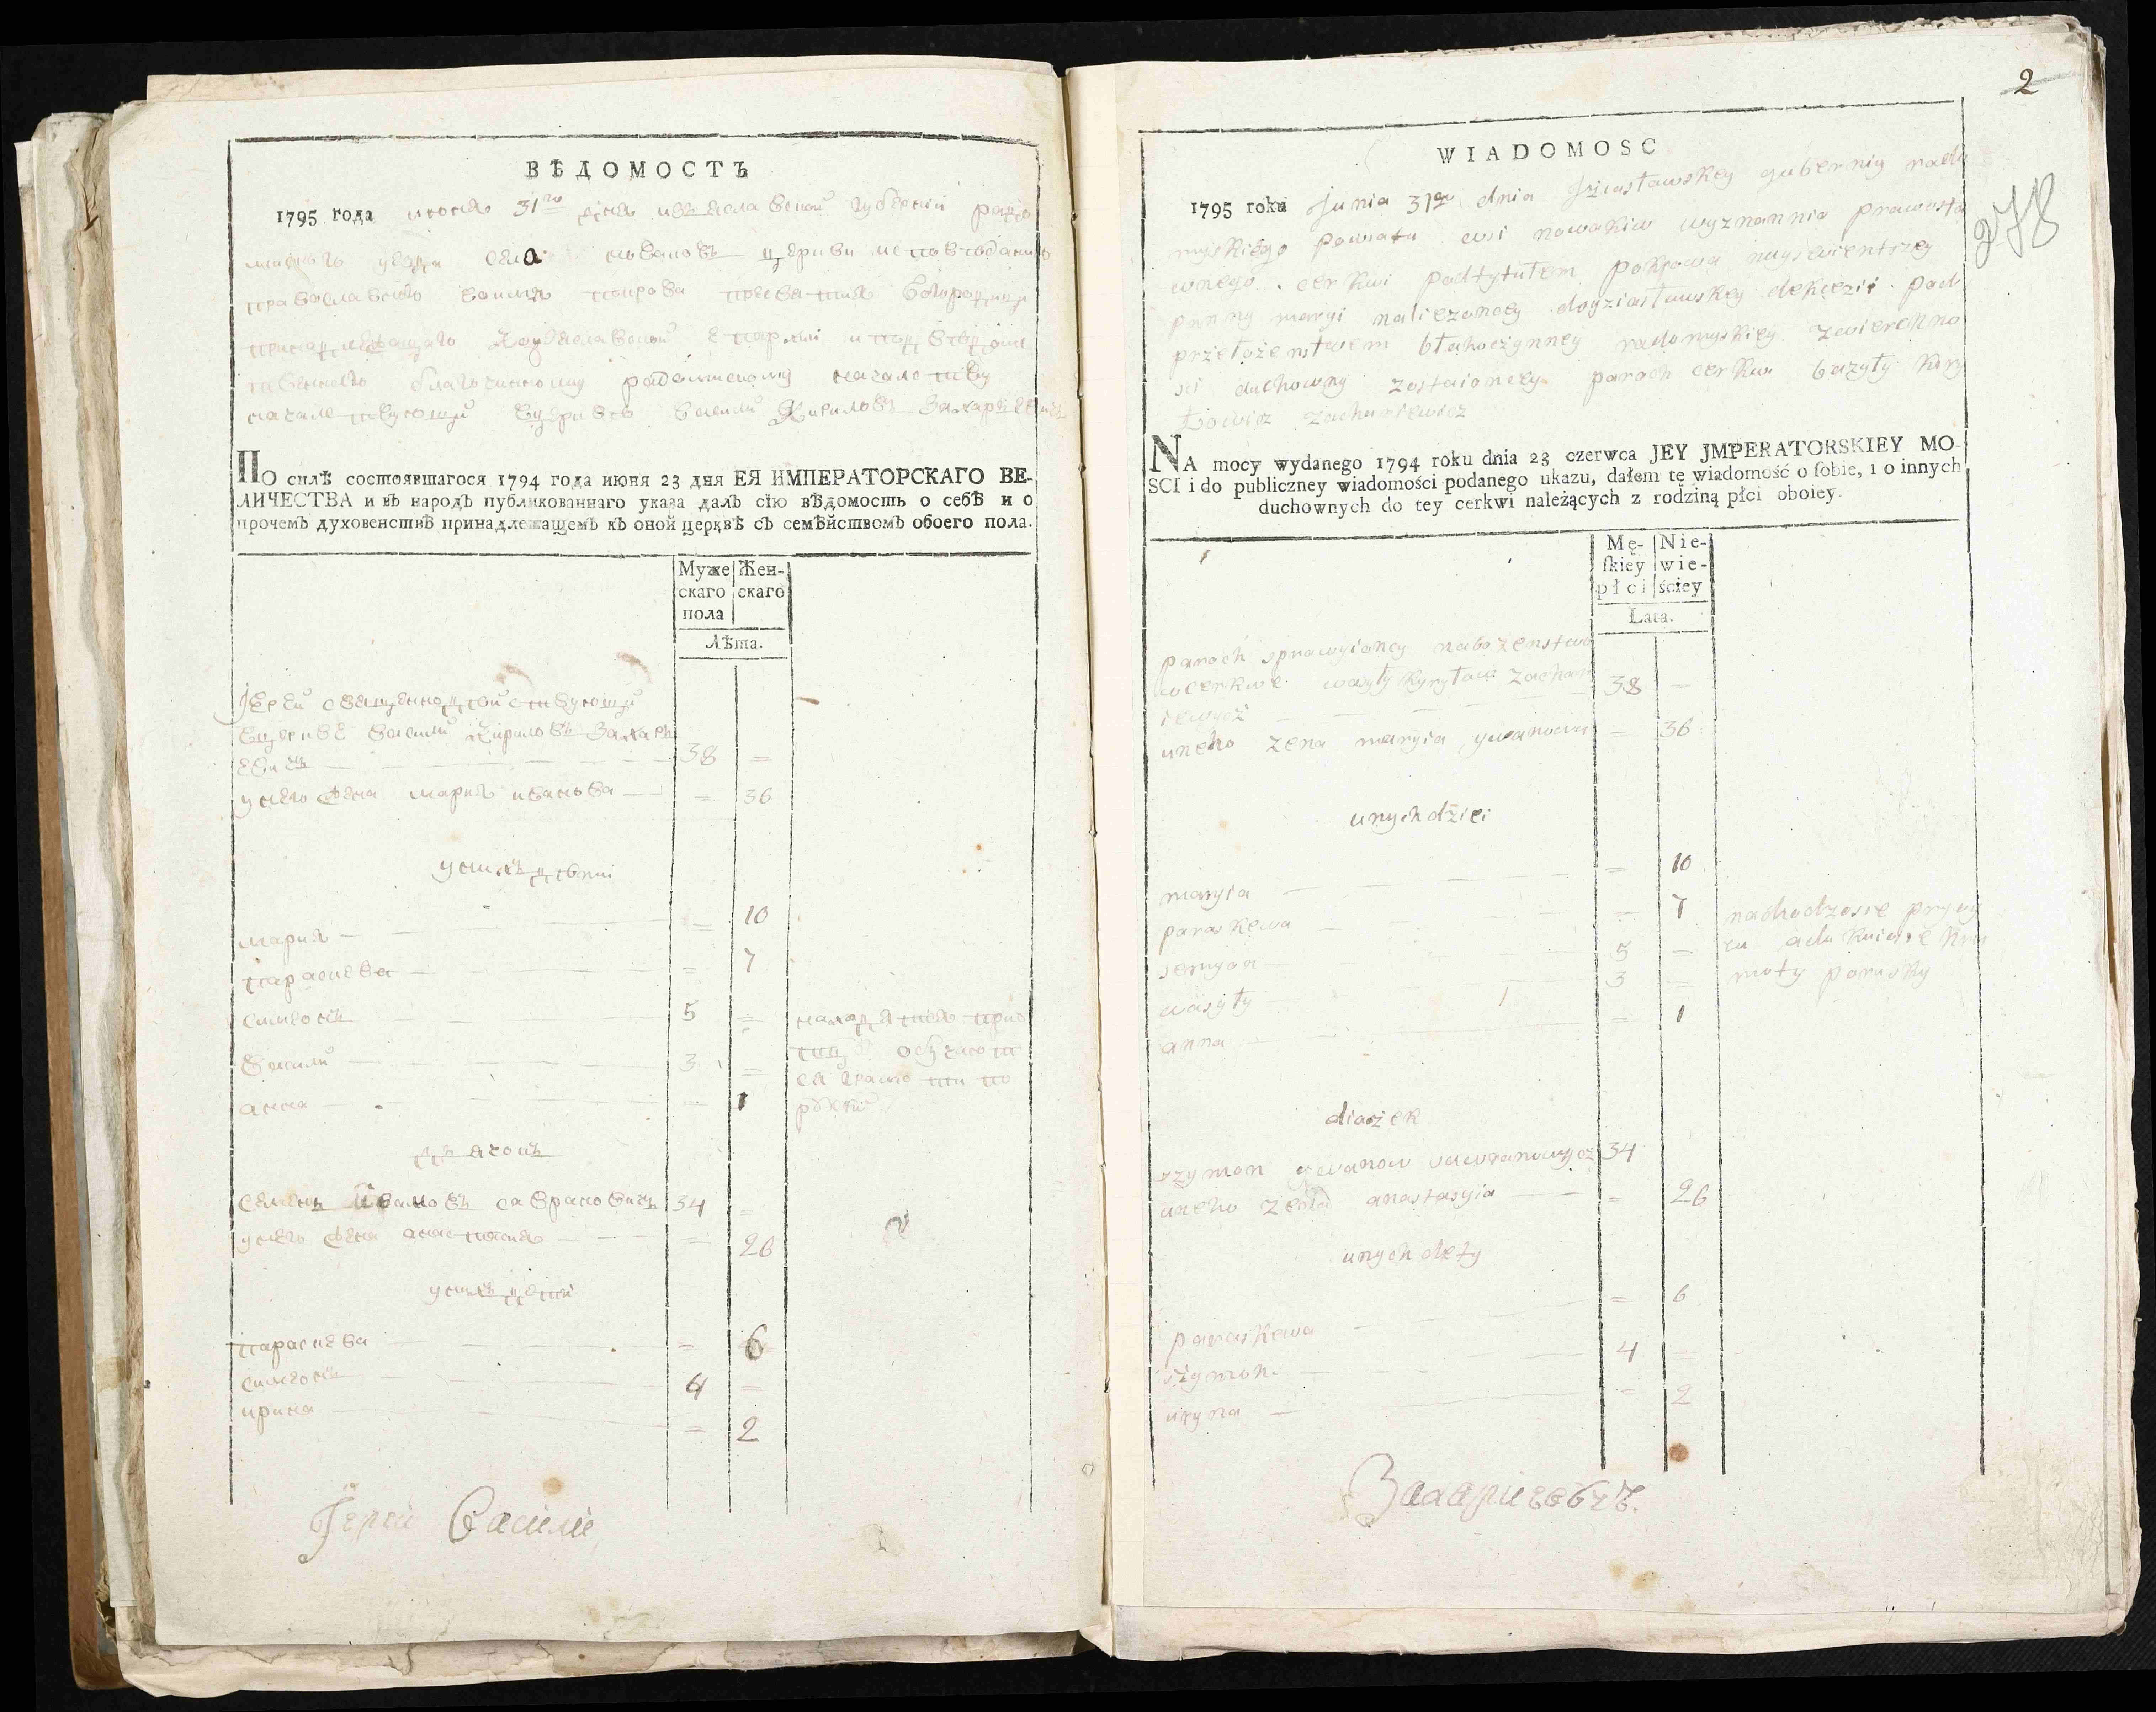 ВѢДОМОСТЬ
1795 года июня 31го дня изъяславской губернии радо
мисльского уезда села новаковъ церкви исповѣданія
православного воимя покрова пресвятия богородици
принадлежащаго
благочинному радомисскому началству
началствующий вцеркве василий Кириловъ Захарѣевичъ
ПО силѣ состоявшагося 1794 года июня 23 дня ЕЯ ИМПЕРАТОРСКАГО ВЕ-
ЛИЧЕСТВА и въ народъ публикованнаго указа далъ сїю вѣдомость о себѣ и о
прочемъ духовенствѣ принадлежащемъ къ оной церквѣ съ семѣйствомъ обоего пола.
Муже Жен-
скаго скаго
пола
Лѣта.
Іерей священнодѣйствующий
вцеркве василий Кириловъ Захарѣ
евичъ 38 =
унего жена мария иванова = 36
унихъ дѣти
мария = 10
параскева = 7
симеонъ 5 = находятся при
василий 3 = обучают
ся грамоти по
анна = 1 руский
дьячокъ
семенъ Ивановъ саврановичъ 34 =
унего жена анастасия = 26
унихъ дети
параскева = 6
симеонъ 4 =
ирина = 2
Іерей Василий
2
278
WIADOMOSC
1795 roku Junia 31go dnia Jziasławskey guberniy rado
myskiego powiatu wsi nowakiw wyznannia prawosła
wnego cerkwi podtytułem pokrowa nayswientrzey
panny maryi naliezoncey doyziasławskey dekcezii pod
przełożenstwem błahoczynney radomyskiey zwierchno
sci duchowny zostaioncey paroch cerkwi bazyły kiry
łowicz zachariewicz
NA mocy wydanego 1794 roku dnia 23 czerwca JEY JMPERATORSKIEY MO-
SCI i do publiczney wiadomości podanego ukazu, dałem tę wiadomość o ſobie, i o innych
duchownych do tey cerkwi należących z rodziną płci oboiey.
Mę- Nie-
ſkiey wie-
płci ściey
Łata.
paroch sprawyioncy nabożenstwo
wcerkwe wasyły kyryłow zachar
iewycz 38 —
uneho żena maryia ywanowa = 36
unych dziei
maryia = 10
paraskewa = 7 nachodzosie pry oy
semyon 5 —
wasyły 3 = moty poruskу
anna = 1
diaczek
szymon ywanow sawranowycz 34
uneho żena anastasyia = 26
unych dety
paraskewa = 6
szymon 4 =
iryna = 2
Захариевичъ